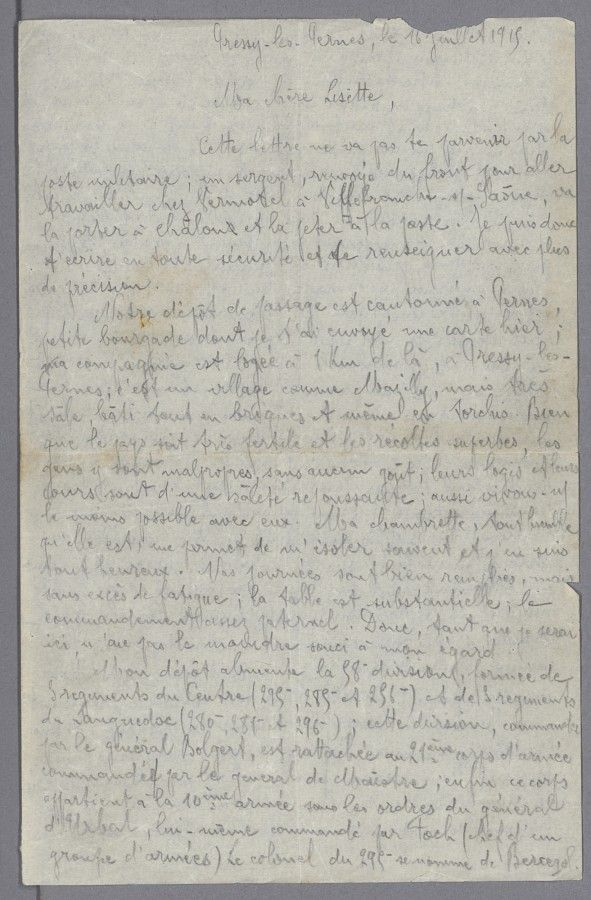 Pressy-les-Pernes, le 16 juillet 1915.
Ma chère Lisette,
Cette lettre ne va pas te parvenir par la
poste militaire ; un sergent, renvoyé du front pour aller
travailler chez Vermorel à Villefranche-s/-Saône, va
la porter à Châlons et la jeter à la poste. Je puis donc
t'écrire en toute sécurité et te renseigner avec plus
de précision.
Notre dépôt de passage est cantonné à Pernes,
petite bourgade dont je t'ai envoyé une carte hier ;
ma compagnie est logée à 1 Km de là, à Pressy-les-
Pernes ; c'est un village comme Mazilly, mais très
sale bâti tout en briques et même en torchis. Bien
que le pays soit très fertile et les récoltes superbes, les
gens y sont malpropres, sans aucun goût ; leurs logis et leurs
cours sont d'une saleté repoussante ; aussi vivons-n/
le moins possible avec eux. Ma chambrette, tout humble
qu'elle est, me permet de m'isoler souvent et j'en suis
tout heureux. Nos journées sont bien remplies, mais
sans excès de fatigue ; la table est substantielle ; le
commandement assez paternel. Donc, tant que je serai
ici, n'aie pas le moindre souci à mon égard.
Mon dépôt alimente la 58e division, formée de
3 régiments du Centre (295e, 285e et 256e) et de 3 régiments
du Languedoc (280e, 281e et 296e) ; cette division, commandée
par le général Bolgert, est rattachée au 21ème corps d'armée
commandée par le général de Maistre ; enfin ce corps
appartient à la 10ème armée sous les ordres du général
d'Urbal, lui-même commandé par Foch (chef d'un
groupe d'armées) Le colonel du 295e se nomme de Bercegol.